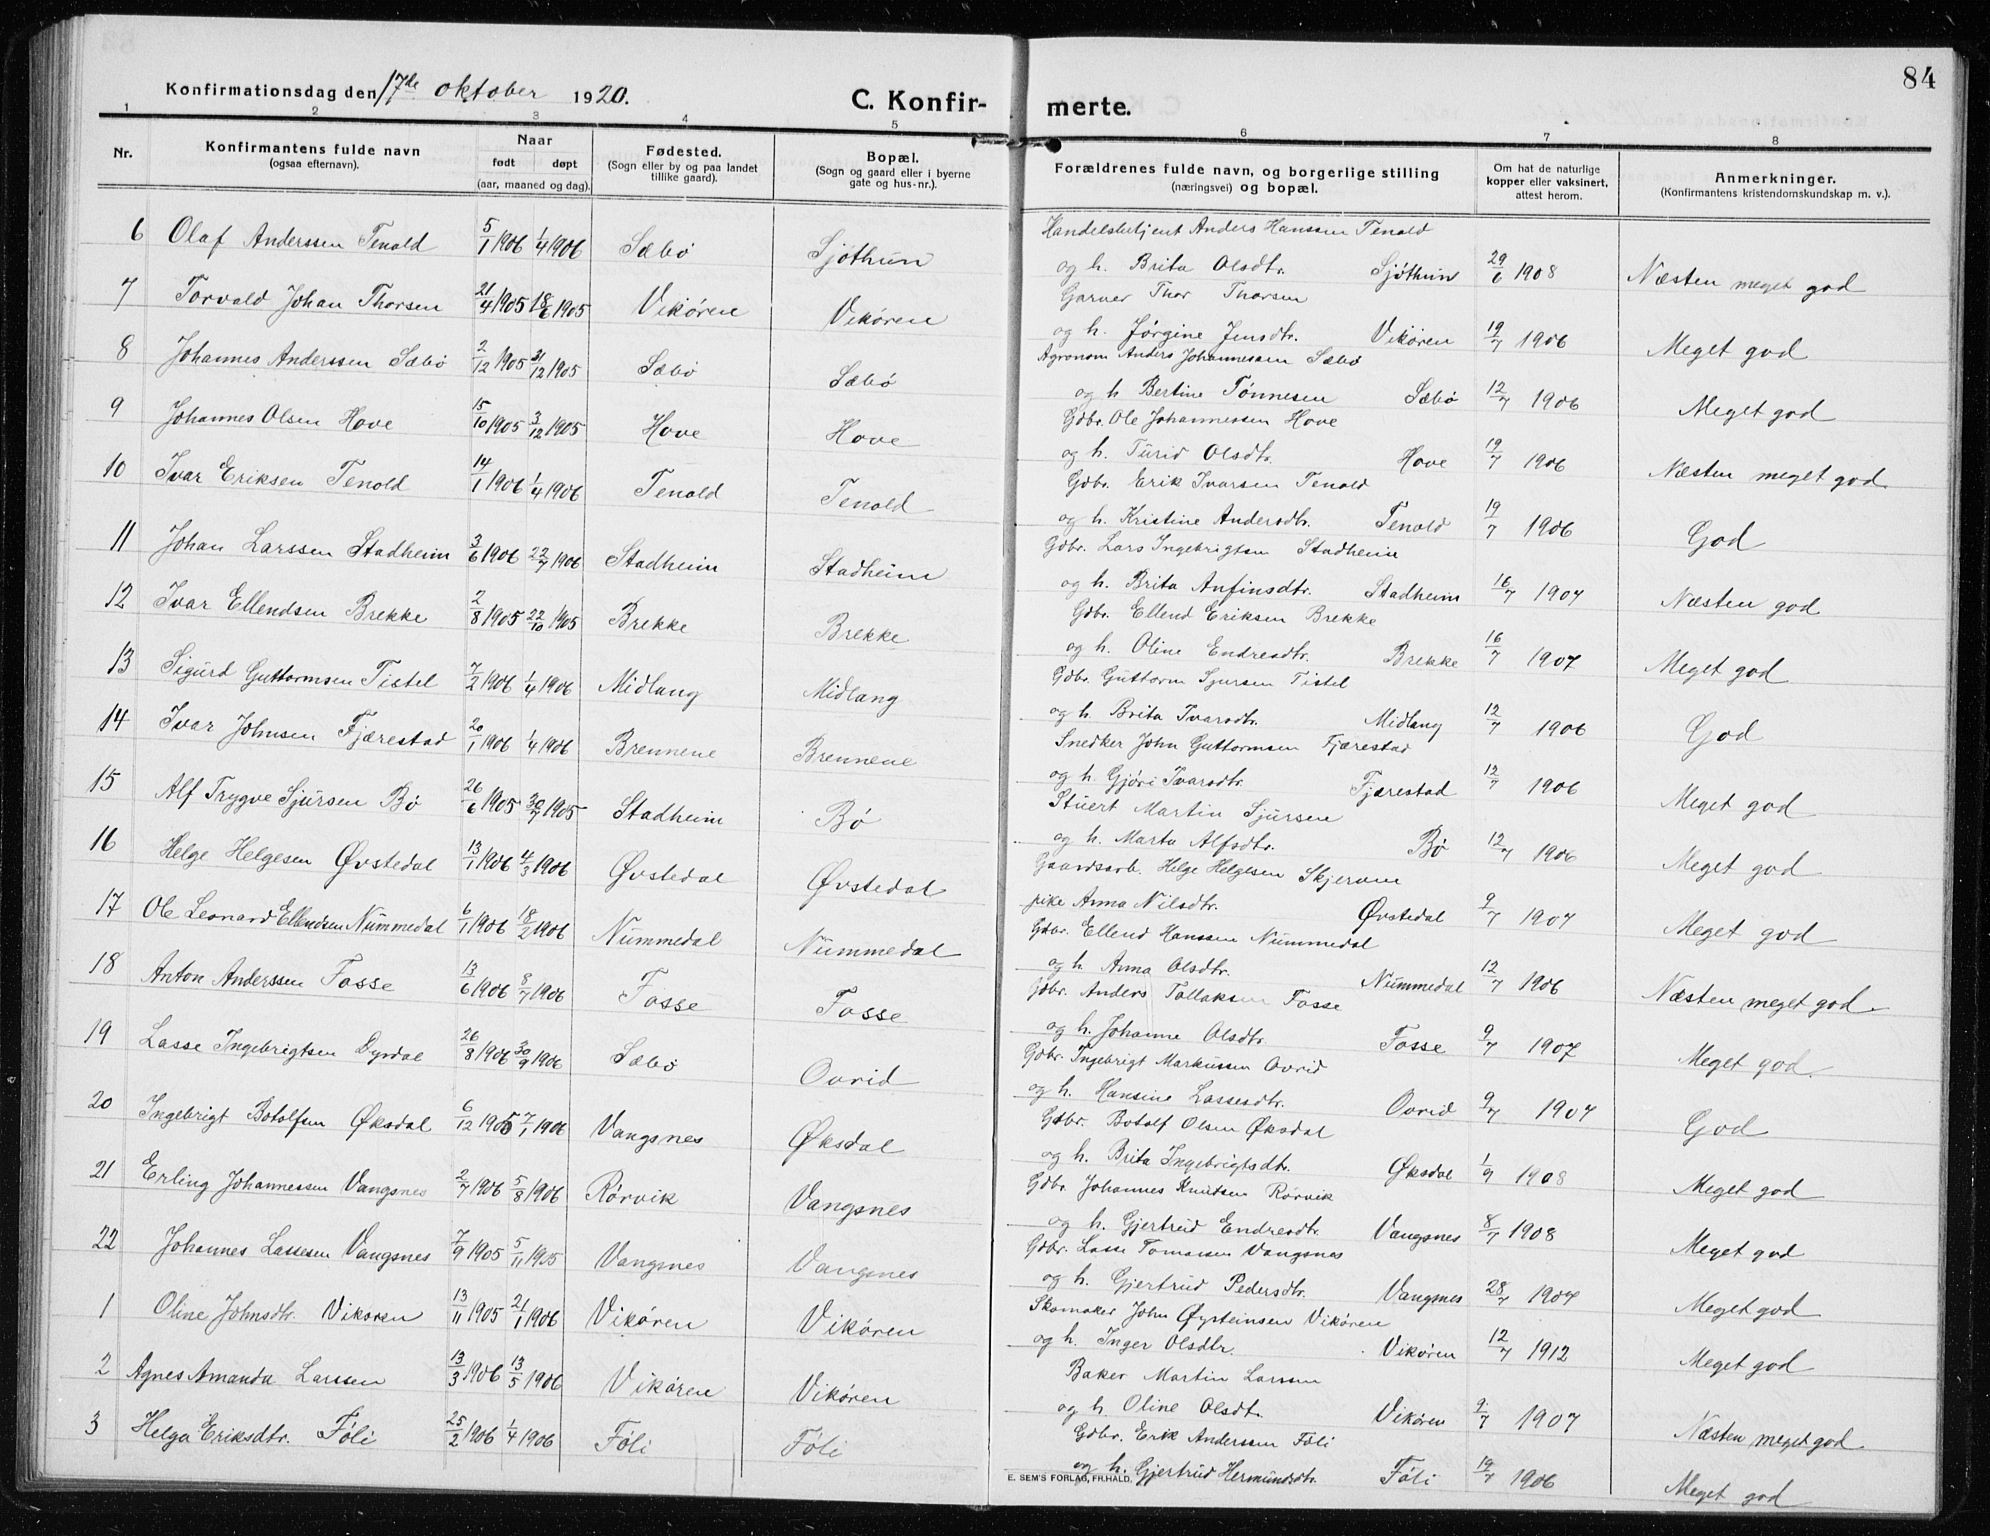 84
Konfirmationsdag den 17de oktober 1920.
C. Konfir- merte.
1 2 3 4 5 6 7 8
Nr. Konfirmantens fulde navn (ogsaa efternavn). Naar født døpt (aar, maaned og dag). Fødested. (Sogn eller by og paa landet tillike gaard). Bopæl. (Sogn og gaard eller i byerne gate og hus-nr.). Forældrenes fulde navn, og borgerlige stilling (næringsvei) og bopæl. Om hat de naturlige kopper eller vaksinert, attest herom. Anmerkninger. (Konfirmantens kristendomskundskap m. v.).
Handelsbetjent Anders Hanssen Tenold
6 Olaf Anderssen Tenold 5/1 1906 1/4 1906 Sæbø Sjøthun og h. Brita Olsdtr. Sjøthun 29/6 1908 Næsten meget god
Garver Thor Thorsen
7 Torvald Johan Thorsen 21/4 1905 18/6 1905 Vikøren Vikøren og h. Jørgine Jensdtr. Vikøren 19/7 1906 Meget god
Agronom Anders Johannessen Sæbø
8 Johannes Anderssen Sæbø 2/12 1905 31/12 1905 Sæbø Sæbø og h. Bertine Tønnesen Sæbø 12/7 1906 Meget god
Gdbr. Ole Johannessen Hove
9 Johannes Olsen Hove 15/10 1905 3/12 1905 Hove Hove og h. Turid Olsdtr. Hove 19/7 1906 Næsten meget god.
Gdbr. Erik Ivarsen Tenold
10 Ivar Eriksen Tenold 14/1 1906 1/4 1906 Tenold Tenold og h. Kristine Andersdtr. Tenold 19/7 1906 God
Gdbr. Lars Ingebrigtsen Stadheim
11 Johan Larssen Stadheim 3/6 1906 22/7 1906 Stadheim Stadheim og h. Brita Anfinsdtr. Stadheim 16/7 1907 Næsten god
Gdbr. Ellend Eriksen Brekke
12 Ivar Ellendsen Brekke 2/8 1905 22/10 1905 Brekke Brekke og h. Oline Endresdtr. Brekke 16/7 1907 Meget god
Gdbr. Guttorm Sjursen Tistel
13 Sigurd Guttormsen Tistel 7/2 1906 1/4 1906 Midlang Midlang og h. Brita Ivarsdtr. Midlang 12/7 1906 God
Snedker John Guttormsen Fjærestad
14 Ivar Johnsen Fjærestad 20/1 1906 1/4 1906 Brennene Brennene og h. Gjøri Ivarsdtr. Fjærestad 12/7 1906 Meget god
Stuert Martin Sjursen
15 Alf Trygve Sjursen Bø 26/6 1905 30/7 1905 Stadheim Bø og h. Marta Alfsdtr. Bø 12/7 1906 Meget god
Gaardsarb. Helge Helgesen Skjerven
16 Helge Helgesen Øvstedal 13/1 1906 4/3 1906 Øvstedal Øvstedal pike Anna Nilsdtr. Øvstedal 9/7 1907 Meget god
Gdbr. Ellend Hanssen Nummedal
17 Ole Leonard Ellendsen Nummedal 6/1 1906 18/2 1906 Nummedal Nummedal og h. Anna Olsdtr. Nummedal 12/7 1906 Næsten meget god.
Gdbr. Anders Tollaksen Fosse
18 Anton Anderssen Fosse 13/6 1906 8/7 1906 Fosse Fosse og h. Johanne Olsdtr. Fosse 9/7 1907 Meget god
Gdbr. Ingebrigt Markussen Ovrid
19 Lasse Ingebrigtsen Dyrdal 26/8 1906 30/9 1906 Sæbø Ovrid og h. Hansine Lassesdtr. Ovrid 9/7 1907 God
Gdbr. Botolf Olsen Øksdal
20 Ingebrigt Botolfsen Øksdal 6/12 1905 7/1 1906 Vangsnes Øksdal og h. Brita Ingebrigtsdtr. Øksdal 1/9 1908 Meget god
Gdbr. Johannes Knutsen Rørvik
21 Erling Johannessen Vangsnes 2/7 1906 5/8 1906 Rørvik Vangsnes og h. Gjertrud Endresdtr. Vangsnes 8/7 1908 Meget god
Gdbr. Lasse Tomassen Vangsnes
22 Johannes Lassesen Vangsnes 7/9 1905 5/11 1905 Vangsnes Vangsnes og h. Gjertrud Pedersdtr. Vangsnes 28/7 1907 Meget god
Skomaker John Øysteinsen Vikøren
1 Oline Johnsdtr. Vikøren 13/11 1905 21/1 1906 Vikøren Vikøren og h. Inger Olsdtr. Vikøren 12/7 1912 Meget god
Baker Martin Larssen
2 Agnes Amanda Larssen 13/3 1906 13/5 1906 Vikøren Vikøren og h. Oline Olsdt. Vikøren 9/7 1907 Næsten meget god
Gdbr. Erik Anderssen Føli
3 Helga Eriksdtr. Føli 25/2 1906 1/4 1906 Føli Føli og h. Gjertrud Hermundsdtr. Føli 19/7 1906 Meget god
E. SEM'S FORLAG, FR.HALD.